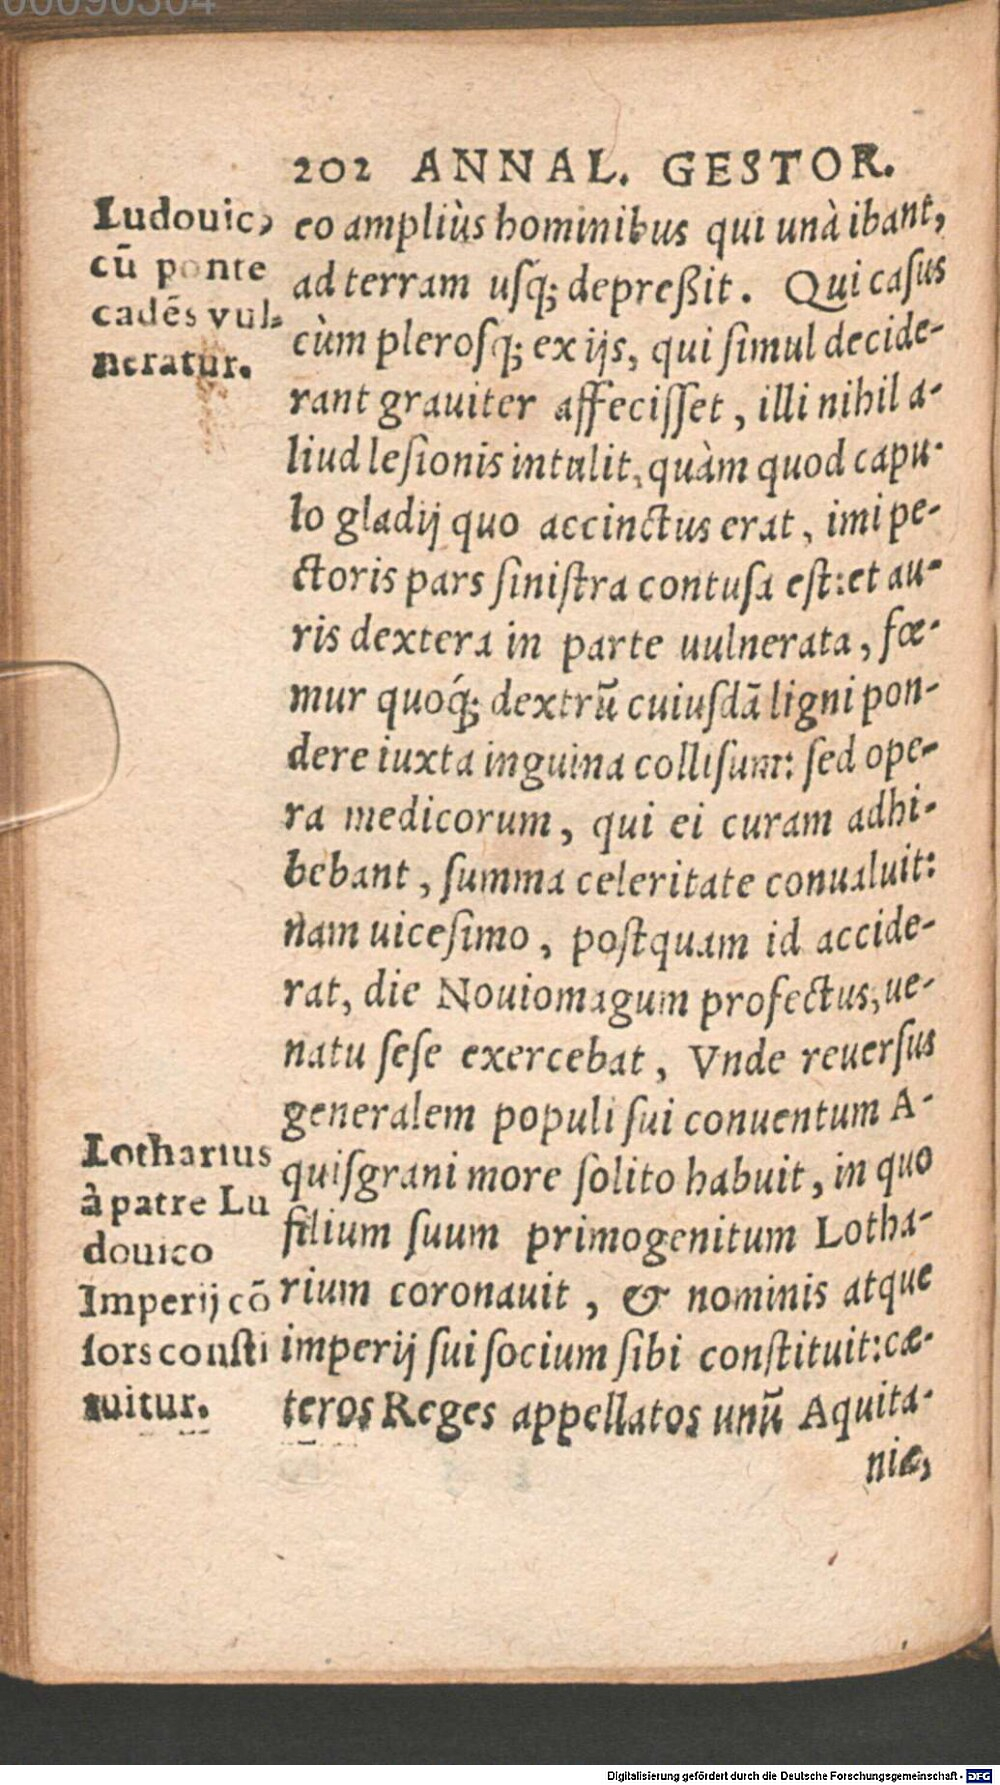 00090304
202 ANNAL. GESTOR.
Ludouic,
cū ponte
cadēs vul-
neratur.
eo ampliùs hominibus qui unà ibant,
ad terram uſq; depreßit. Qui caſus
cùm pleroſq; ex ijs, qui ſimul decide-
rant grauiter affeciſſet, illi nihil a-
liud leſionis intulit, quàm quod capu-
lo gladij quo accinctus erat, imi pe-
ctoris pars ſiniſtra contuſa eſt: et au-
ris dextera in parte uulnerata, fœ-
mur quoq́; dextrū cuiuſdā ligni pon-
dere iuxta inguina colliſum: ſed ope-
ra medicorum, qui ei curam adhi-
bebant, ſumma celeritate conualuit:
nam uiceſimo, poſtquam id accide-
rat, die Nouiomagum profectus, ue-
natu ſeſe exercebat, Vnde reuerſus
generalem populi ſui conuentum A-
quiſgrani more ſolito habuit, in quo
filium ſuum primogenitum Lotha-
rium coronauit, & nominis atque
imperij ſui ſocium ſibi conſtituit: cæ-
teros Reges appellatos unū Aquita-
niæ,
Lotharius
à patre Lu
douico
Imperij cō
ſors conſti
tuitur.
Digitalisierung gefördert durch die Deutsche Forschungsgemeinschaft - DFG